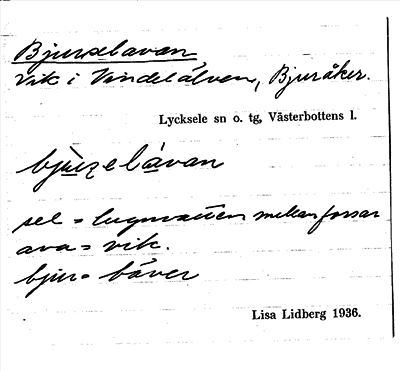 Bjurselavan
Vik i Vindelälven, Bjuråker.
Lycksele sn o. tg, Västerbottens l.
bju̇rselávan
sel = lugnvatten mellan forsar
ava = vik.
bjur = bäver
Lisa Lidberg 1936.